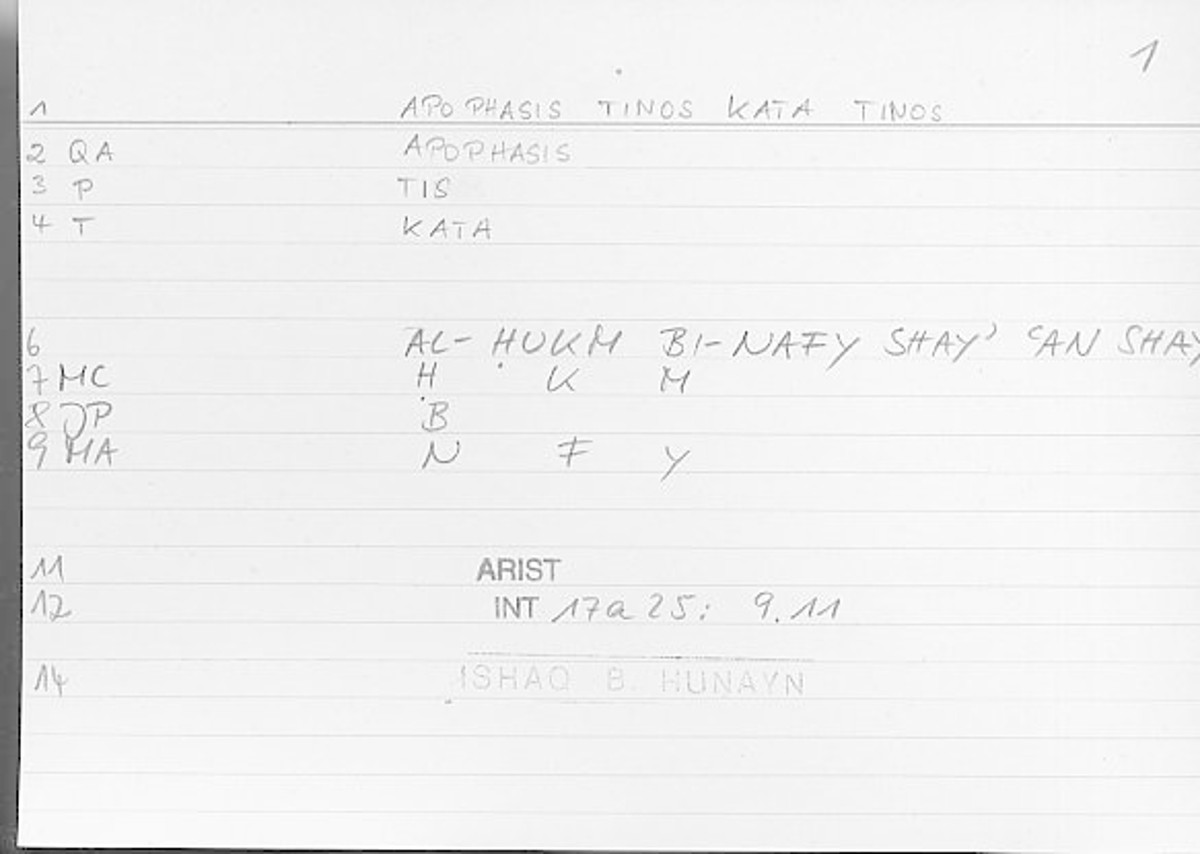 1
1 APOPHASIS TINOS KATA TINOS
2 QA APOPHASIS
3 P TIS
4 T KATA
6 AL-ḤUKM BI-NAFY SHAYʾ ʿAN SHAY
7 MC Ḥ K M
8 JP B
9 MA N F Y
11 ARIST
12 INT 17a25: 9.11
14 ISHAQ B. HUNAYN